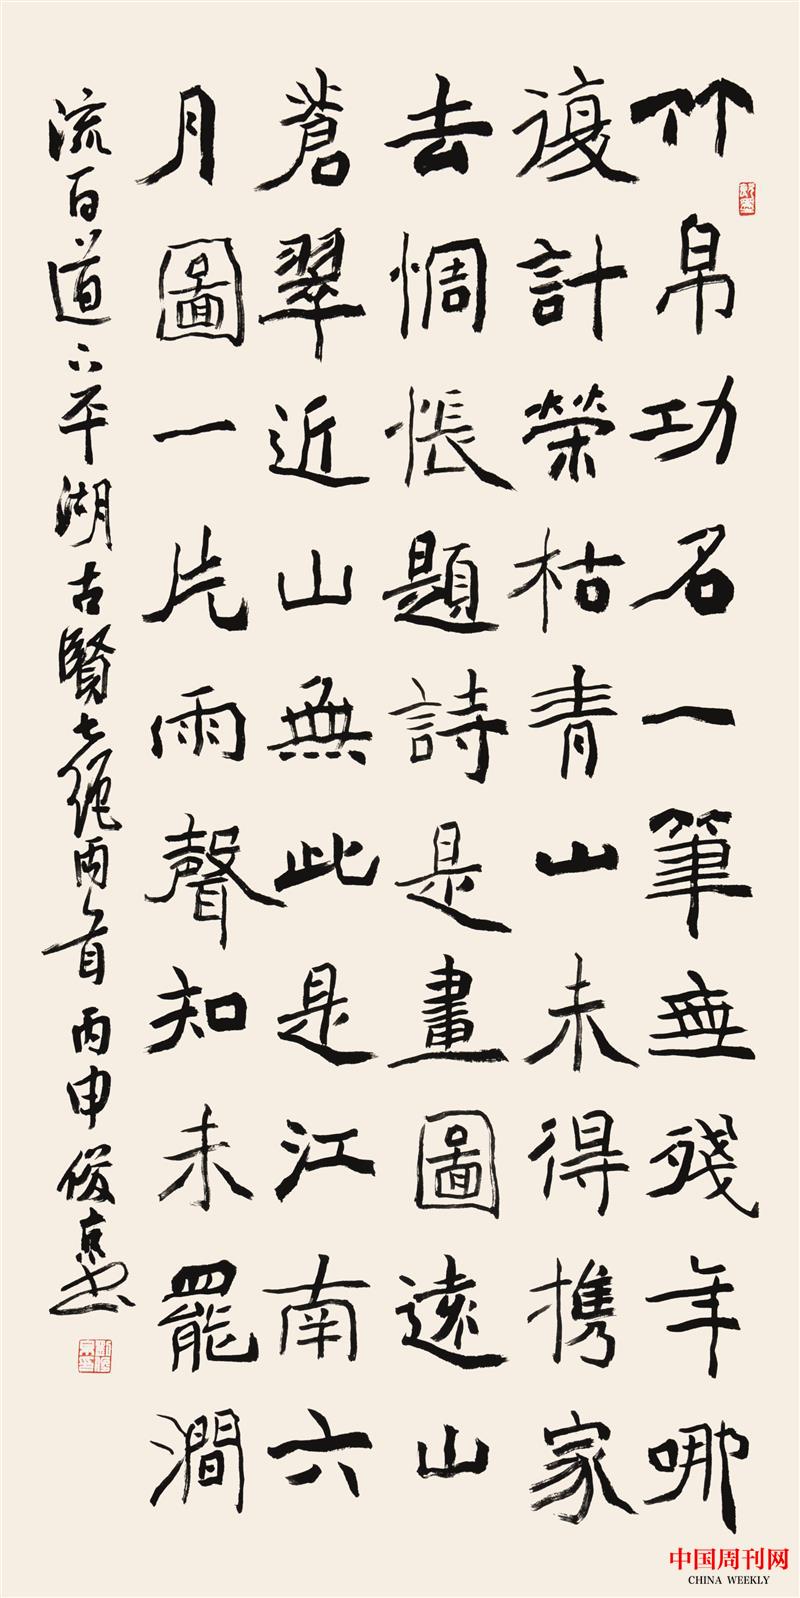 竹帛功名一筆無殘年哪
復計榮枯青山未得携家
去惆悵題詩是畫圖遠山
蒼翠近山無此是江南六
月圖一片雨聲知未罷澗
流百道下平湖古賢七絕兩首丙申俊京書
中国周刊网
CHINA WEEKLY